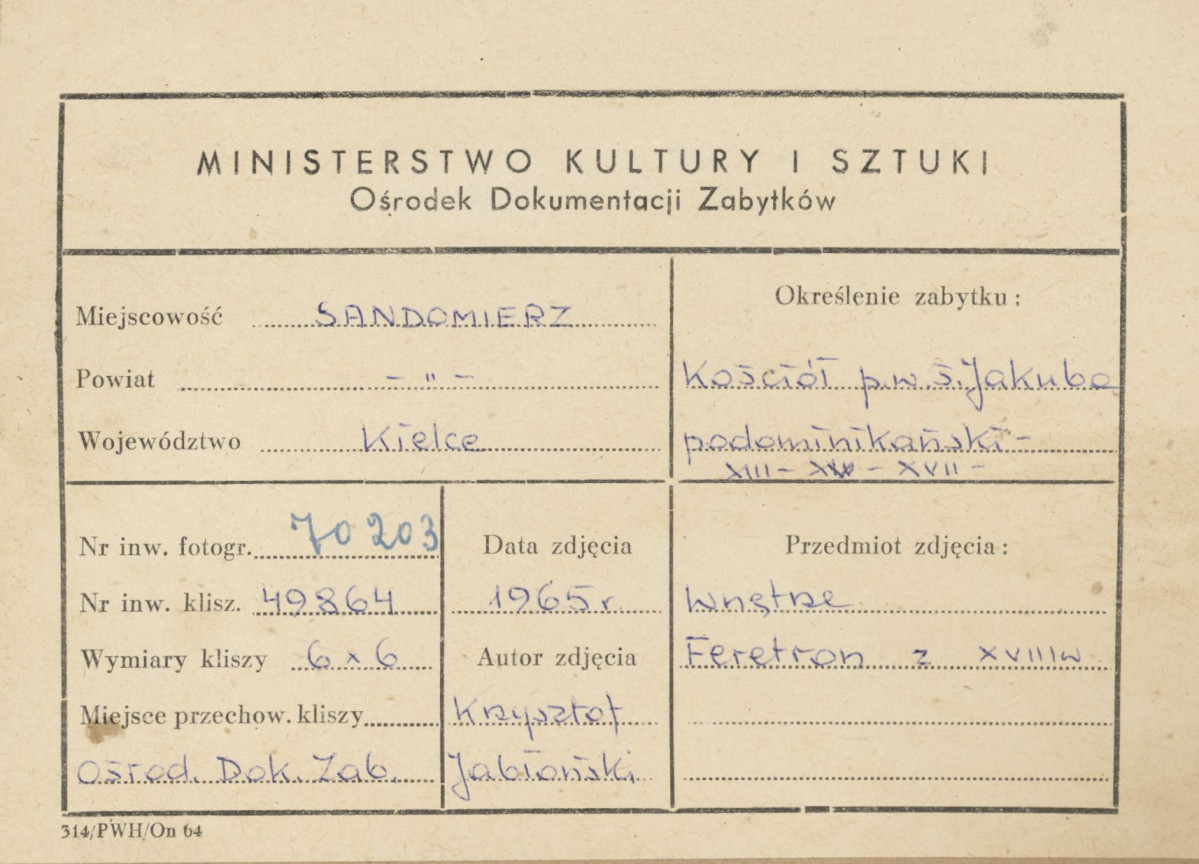 MINISTERSTWO KULTURY I SZTUKI
Ośrodek Dokumentacji Zabytków
Miejscowość SANDOMIERZ
Powiat - " -
Województwo Kielce
Określenie zabytku:
Kościół p.w. ś. Jakuba
podominikański -
XIII - XIV - XVII -
Nr inw. fotogr. 70203
Nr inw. klisz. 49864
Wymiary kliszy 6 x 6
Miejsce przechow. kliszy
Ośrod. Dok. Zab.
Data zdjęcia
1965 r.
Autor zdjęcia
Krzysztof
Jabłoński
Przedmiot zdjęcia:
Wnętrze
Feretron z XVIII w
314/PWH/On 64